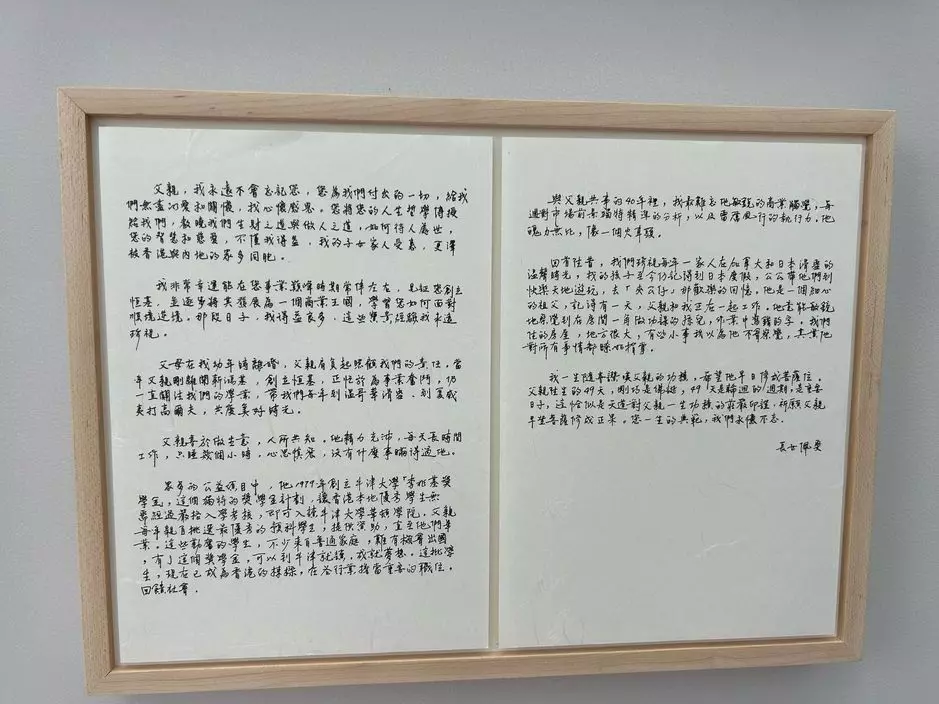 父親，我永遠不會忘記您，您為我們付出的一切，給我
們無盡的愛和關懷，我心懷感恩。您將您的人生哲學傳授
給我們，教曉我們生財之道與做人之道，如何待人處世，
您的智慧和慈愛，不僅我得益，我的子女家人受惠，更澤
被香港與內地的眾多同胞。
我非常幸運能在您事業巔峰時期常伴左右，見証您創立
恒基，並逐步將其發展為一個商業王國，學習您如何面對
順境逆境。那段日子，我得益良多，這些寶貴經驗我永遠
珍視。
父母在我幼年時離婚，父親肩負起照顧我們的責任，當
年父親剛離開新鴻基，創立恒基，正忙於為事業奮鬥，仍
一直關注我們的學業，帶我們每年到溫哥華滑雪、到夏威
夷打高爾夫，共度美好時光。
父親喜於做生意，人所共知。他精力充沛，每天長時間
工作，只睡幾個小時，心思慎密，沒有什麼事瞞得過他。
眾多的公益項目中，他1979年創立牛津大學「李兆基獎
學金」這個獨特的獎學金計劃，讓香港本地優秀學生無
需經過嚴格入學考核，即可入讀牛津大學華頓學院。父親
每年親自挑選最優秀的預科學生，提供資助，直至他們畢
業。這些勤奮的學生，不少來自普通家庭，難有機會出國，
有了這個獎學金，可以到牛津就讀，成就夢想。這批學
生，現在已成為香港的棟樑，在各行業擔當重要的職位。
回饋社會。
與父親共事的40年裡，我最難忘他敏銳的商業觸覺，每
遇對市場前景獨特精準的分析，以及雷厲風行的執行力，他
魄力無比，像一個火車頭。
回首往昔，我們珍視每年一家人在加拿大和日本滑雪的
溫馨時光，我的孩子至今仍記得到日本度假，公公帶他們到
快樂天地遊玩，去「夾公仔」那歡樂的回憶。他是一個知心
的祖父，記得有一天，父親和我正在一起工作。他竟能敏銳
地察覺到在房間一角做功課的孫兒，作業中寫錯的字。我們
住的房屋，地方很大，有些小事我以為他不會察覺，其實他
對所有事情都瞭如指掌。
我一生隨喜讚嘆父親的功德，希望他早日修成菩薩位。
父親往生的49天，剛巧是佛誕，49天是輪迴的週期，是重要
日子，這恰似是天道對父親一生功德的莊嚴印證，祈願父親
早登菩薩修成正果。您一生的典範，我們永懷不忘。
長女佩雯